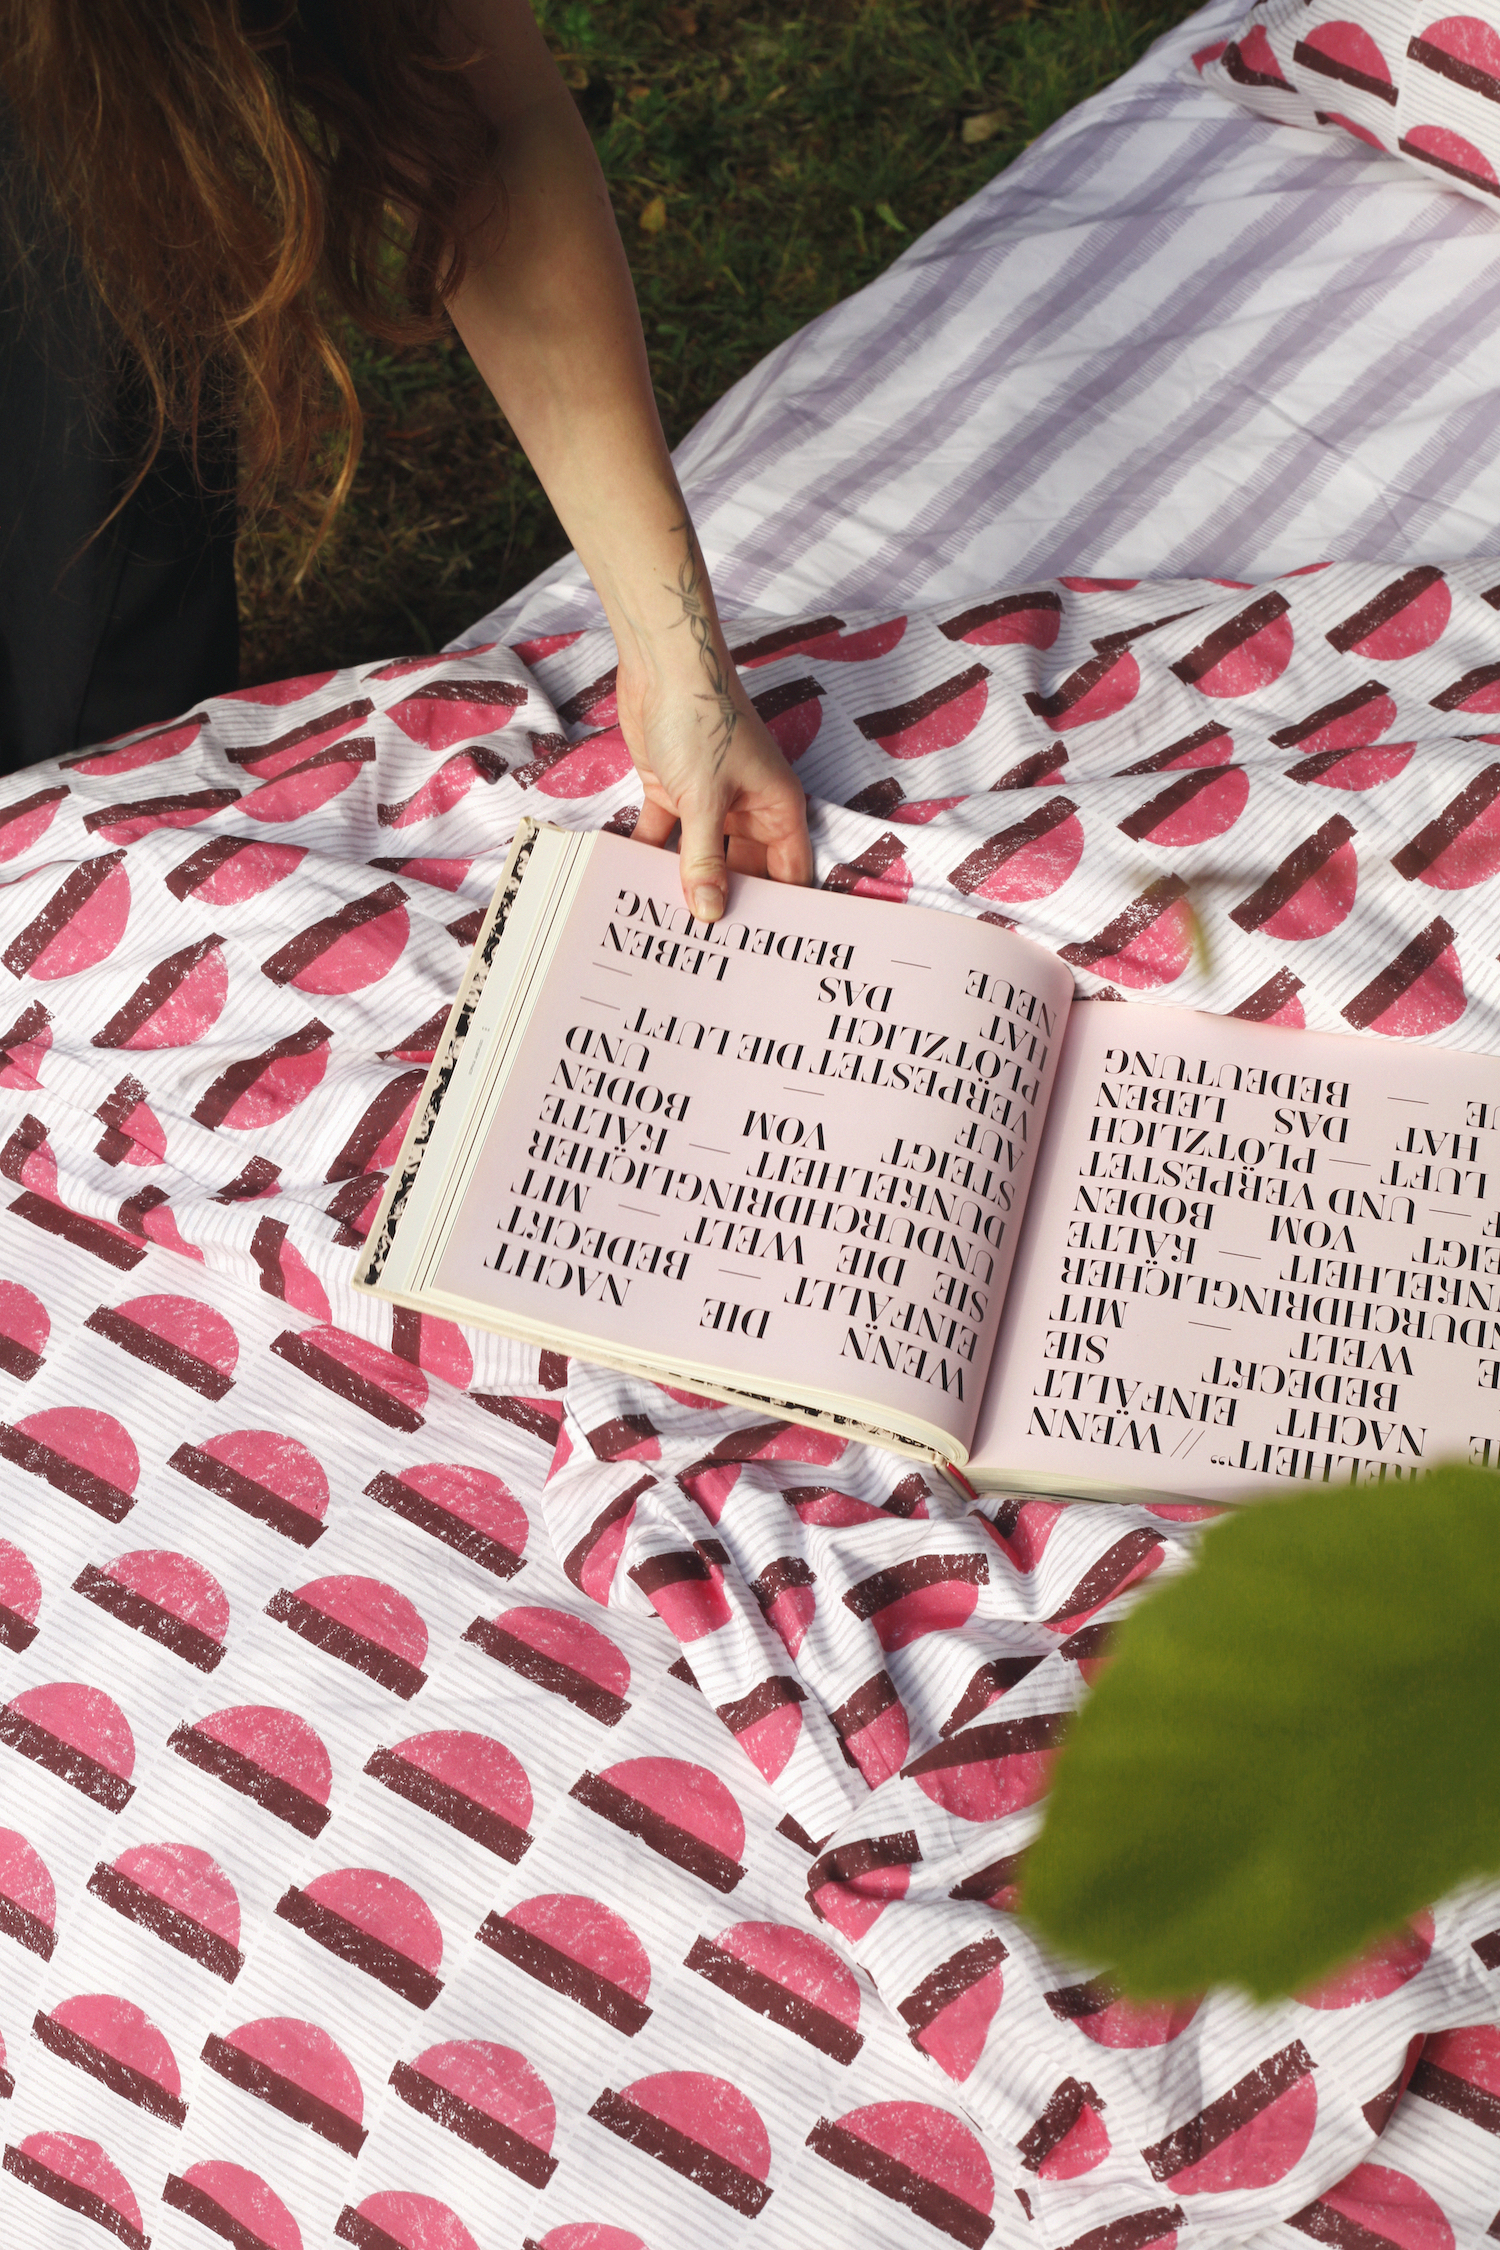 KELHEIT“ // WENN
NACHT EINFÄLLT
BEDECKT SIE
E WELT — MIT
NDURCHDRINGLICHER
NKELHEIT — KÄLTE
EIGT VOM BODEN
F — UND VERPESTET
LUFT — PLÖTZLICH
HAT DAS LEBEN
E — BEDEUTUNG
WENN DIE NACHT
EINFÄLLT — BEDECKT
SIE DIE WELT — MIT
UNDURCHDRINGLICHER
DUNKELHEIT — KÄLTE
STEIGT VOM BODEN
AUF — UND
VERPESTET DIE LUFT —
PLÖTZLICH —
HAT DAS LEBEN
NEUE — BEDEUTUNG